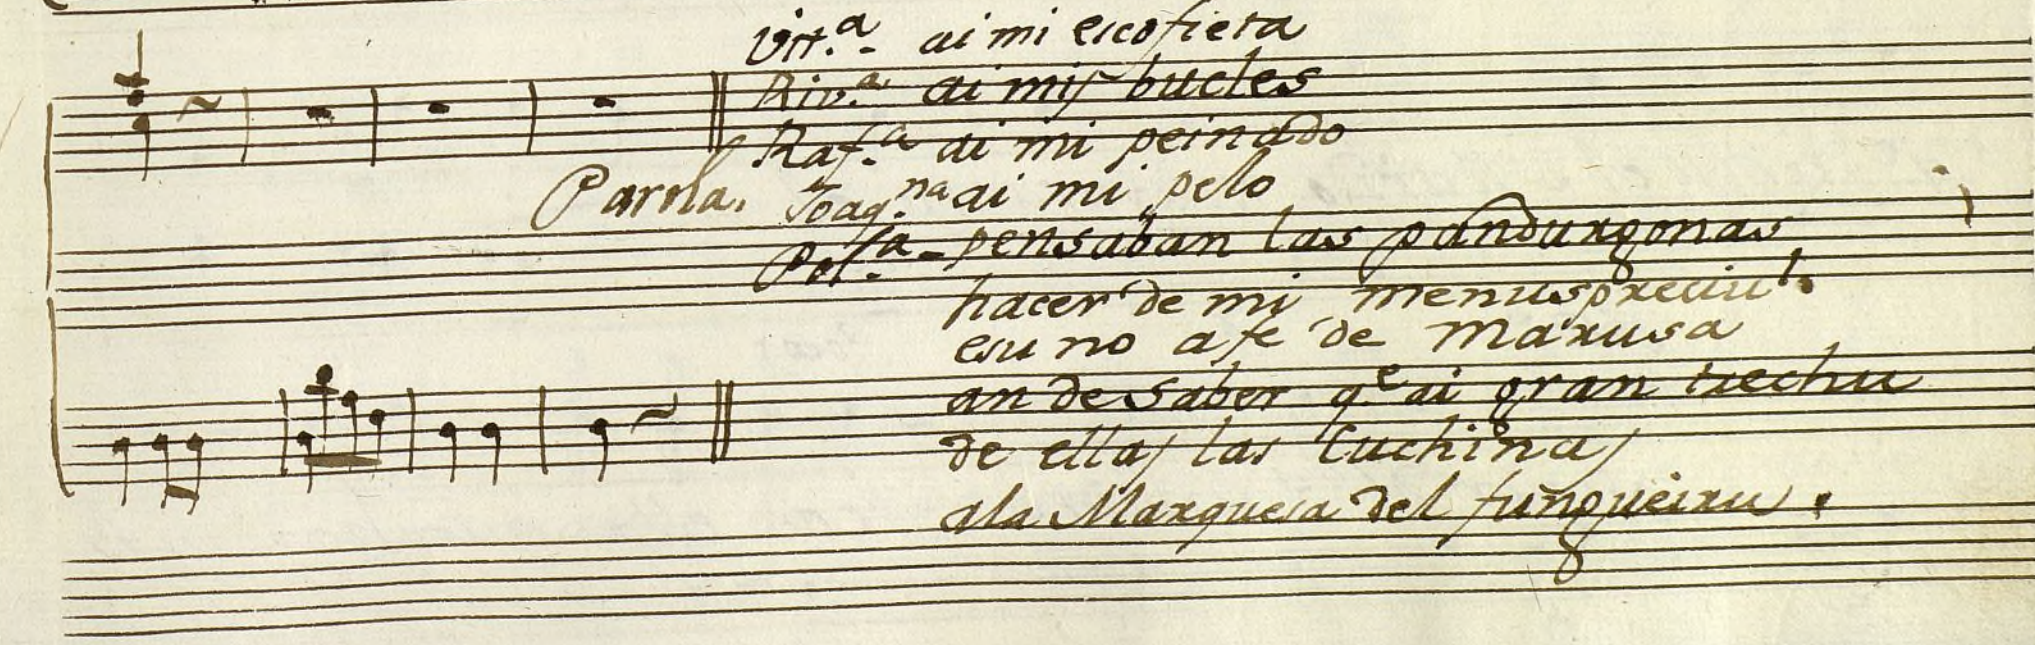 Vit.ª ai mi escofieta
Riv.ª ai mis bucles
Raf.ª ai mi peinado
Parola. Joaq.na ai mi pelo
Pol.ª - pensaban las pandurgonas
hacer de mi menuspreciu
esu no a fe de Marusa
an de saber q.e ai gran trechu
de ellas las Cuchinas
ala Marquesa del fungueiru.